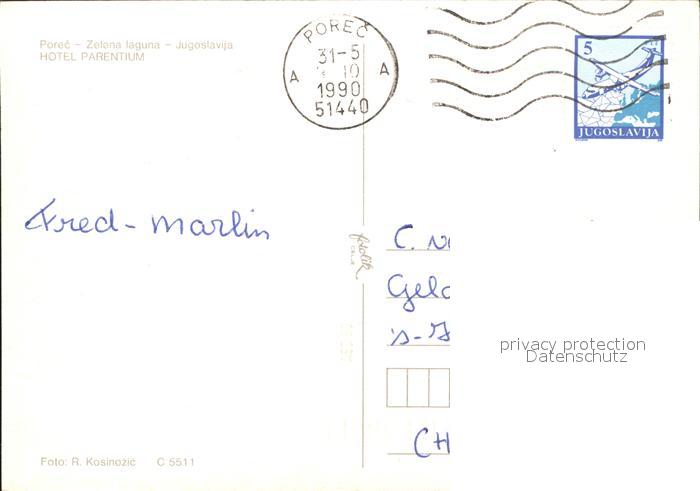 Poreč – Zelena laguna – Jugoslavija
HOTEL PARENTIUM
POREČ
31-5
10
A A
1990
51440
5
JUGOSLAVIJA
Fred - Marlin
C.
fotolik
CELJE
CH
privacy protection
Datenschutz
Foto: R. Kosinožić C 5511